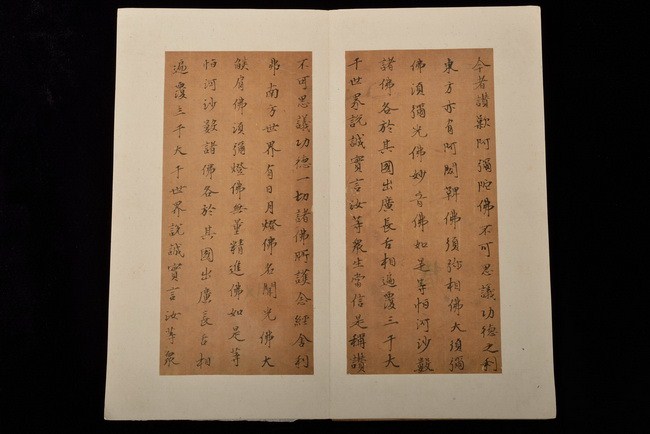 今者讚歎阿彌陀佛不可思議功德之利
東方亦有阿閦鞞佛須弥相佛大須彌
佛須彌光佛妙音佛如是等恒河沙數
諸佛各於其國出廣長舌相遍覆三千大
千世界說誠實言汝等衆生當信是稱讚
不可思議功德一切諸佛所護念經舍利
弗南方世界有日月燈佛名聞光佛大
燄肩佛須彌燈佛無量精進佛如是等
恒河沙數諸佛各於其國出廣長舌相
遍覆三千大千世界說誠實言汝等衆